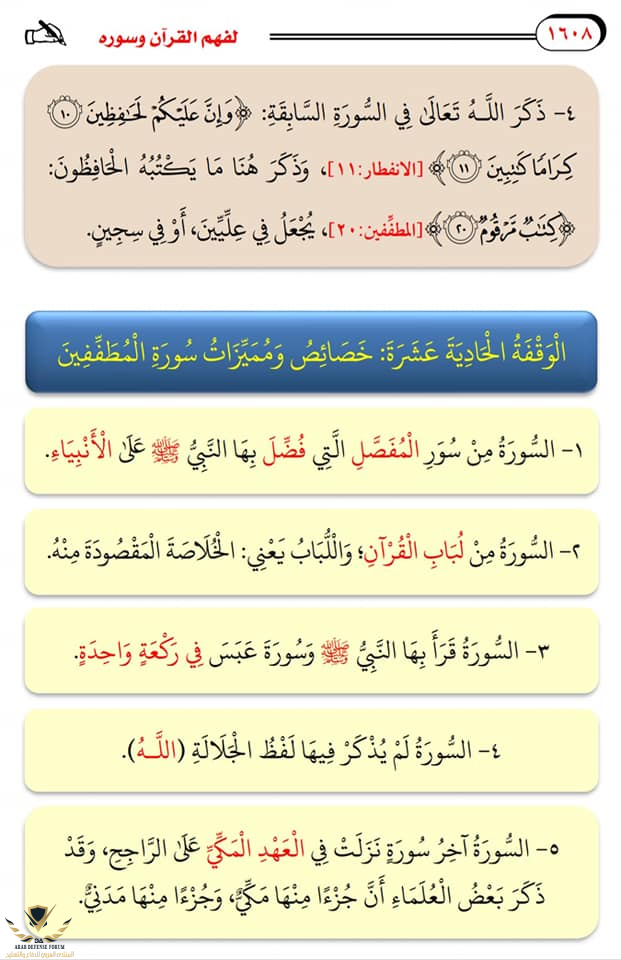 ١٦٠٨
لفهم القرآن وسوره
٤- ذَكَرَ اللَّـهُ تَعَالَىٰ فِي السُّورَةِ السَّابِقَةِ: ﴿وَإِنَّ عَلَيْكُمْ لَحَافِظِينَ ١٠
كِرَامًا كَاتِبِينَ ١١﴾ [الانفطار:١١]، وَذَكَرَ هُنَا مَا يَكْتُبُهُ الْحَافِظُونَ:
﴿كِتَابٌ مَرْقُومٌ ٢٠﴾ [المطفِّفين:٢٠]، يُجْعَلُ فِي عِلِّيِّينَ، أَوْ فِي سِجِينٍ.
الْوَقْفَةُ الْحَادِيَةَ عَشَرَةَ: خَصَائِصُ وَمُمَيِّزَاتُ سُورَةِ الْمُطَفِّفِينَ
١- السُّورَةُ مِنْ سُوَرِ الْمُفَصَّلِ الَّتِي فُضِّلَ بِهَا النَّبِيُّ ﷺ عَلَىٰ الْأَنْبِيَاءِ.
٢- السُّورَةُ مِنْ لُبَابِ الْقُرْآنِ؛ وَاللُّبَابُ يَعْنِي: الْخُلَاصَةَ الْمَقْصُودَةَ مِنْهُ.
٣- السُّورَةُ قَرَأَ بِهَا النَّبِيُّ ﷺ وَسُورَةَ عَبَسَ فِي رَكْعَةٍ وَاحِدَةٍ.
٤- السُّورَةُ لَمْ يُذْكَرْ فِيهَا لَفْظُ الْجَلَالَةِ (اللَّـهُ).
٥- السُّورَةُ آخِرُ سُورَةٍ نَزَلَتْ فِي الْعَهْدِ الْمَكِّيِّ عَلَىٰ الرَّاجِحِ، وَقَدْ
ذَكَرَ بَعْضُ الْعُلَمَاءِ أَنَّ جُزْءًا مِنْهَا مَكِّيٌّ، وَجُزْءًا مِنْهَا مَدَنِيٌّ.
ARAB DEFENSE FORUM
المنتدى العربي للدفاع والتسليح